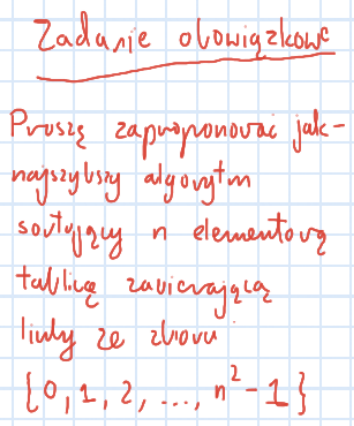 Zadanie obowiązkowe
Proszę zaproponować jak-
najszybszy algorytm
sortujący n elementową
tablicę zawierającą
liczby ze zbioru
{0, 1, 2, ..., n² - 1}